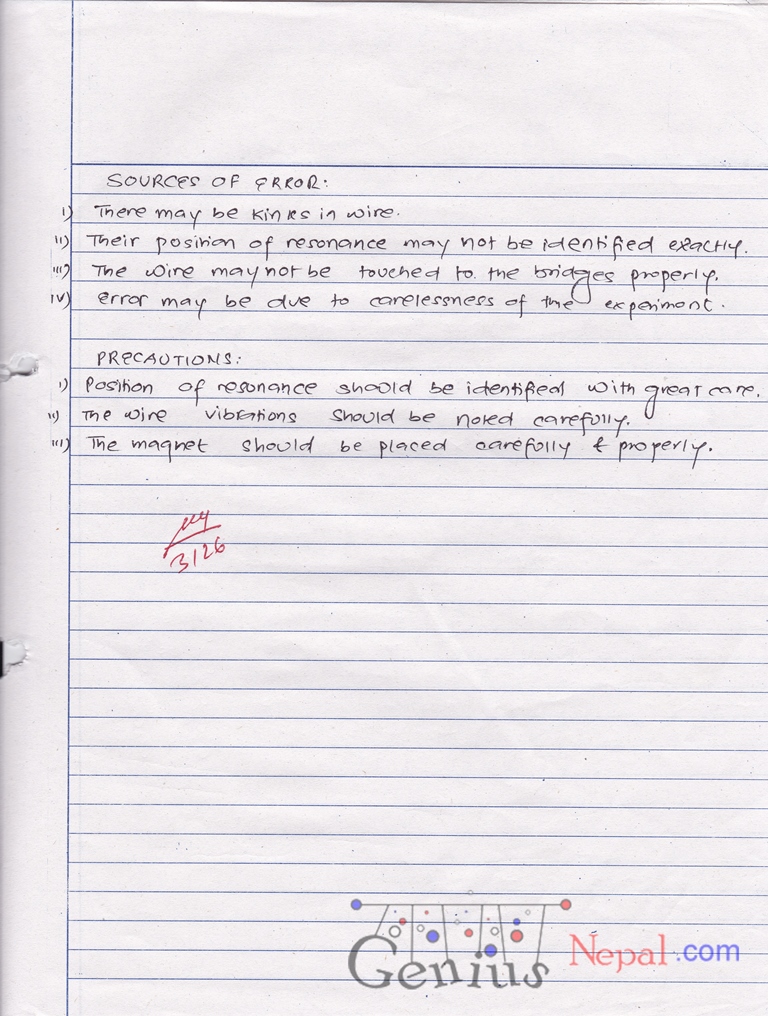 SOURCES OF ERROR:
i) There may be kinks in wire.
ii) Their position of resonance may not be identified exactly.
iii) The wire may not be touched to the bridges properly.
iv) error may be due to carelessness of the experiment.
PRECAUTIONS:
i) Position of resonance should be identified with great care.
ii) The wire vibrations should be noted carefully.
iii) The magnet should be placed carefully & properly.
3/26
Genius Nepal.com